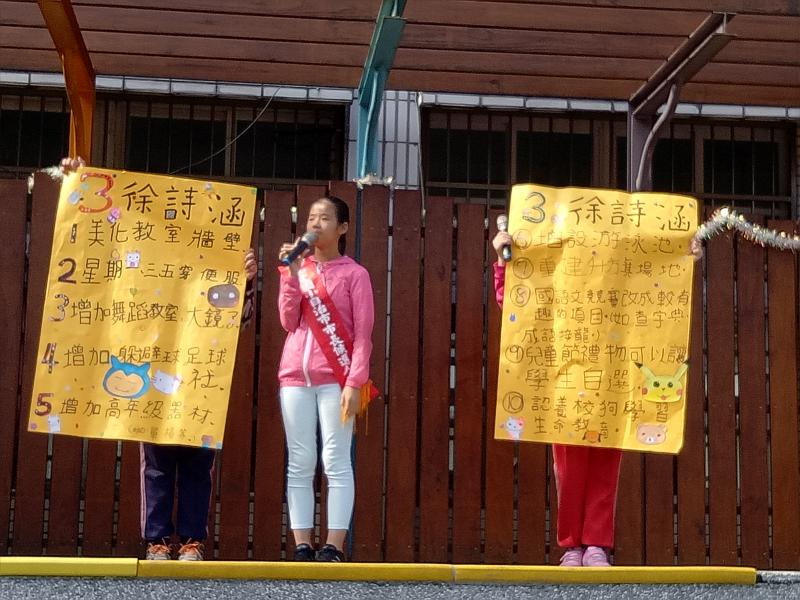 3 徐詩涵
1 美化教室牆壁
2 星期一三五穿便服
3 增加舞蹈教室大鏡子
4 增加躲避球足球
社
5 增加高年級器材
自治市市長候選人
3 徐詩涵
⑥ 增設游泳池.
⑦ 重建升旗場地.
⑧ 國語文競賽改成較有
趣的項目.如查字典.
成語接龍
⑨ 兒童節禮物可以讓
學生自選
⑩ 認養校狗學習
生命教育